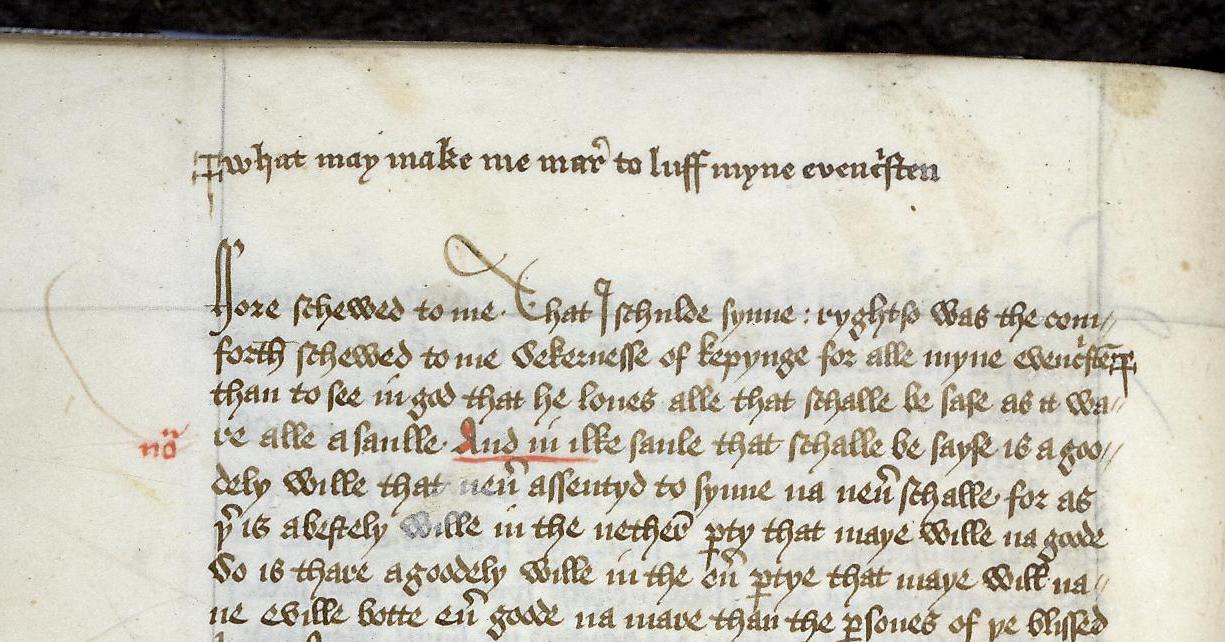 what may make me mar̉ to luff myne evenc̉sten
hore schewed to me. That I schulde synne : ryght so was the com//
forth schewed to me Sekernesse of kepynge for alle myne evenc̉sten
than to see in god that he loues alle that schalle be safe as it wa//
nō re alle a saulle. And in ilke saule that schalle be sayfe is a goo//
dely wille that neủ assentyd to synne na neủ schalle. for as
þ̉ is a bestely wille in the nethere ꝑty that maye wille na goode
So is thare a goodely wille in the oủ ꝑtye that maye will na//
ne eville botte eủ goode na mare than the ꝑsones of þe blissed